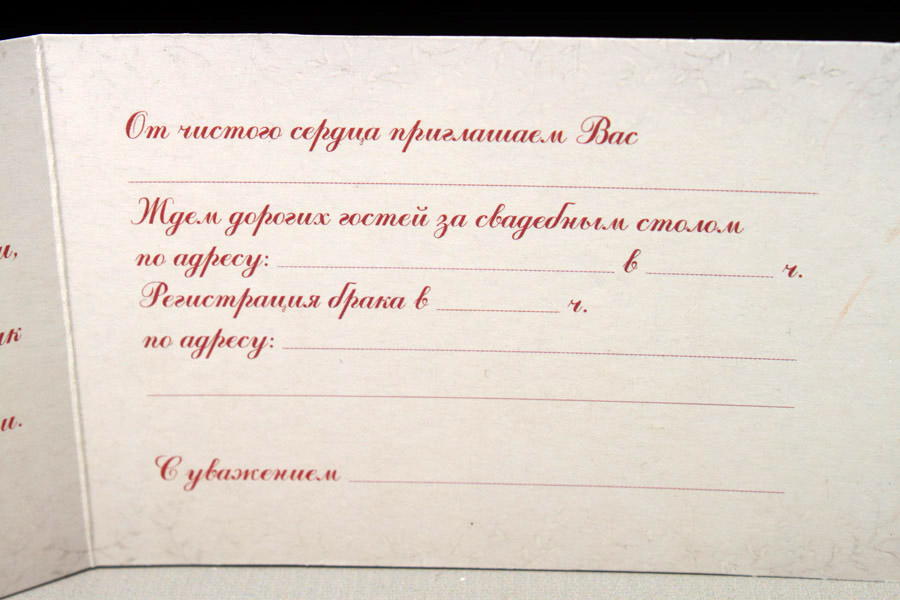 От чистого сердца приглашаем Вас
Ждем дорогих гостей за свадебным столом
по адресу: в ч.
Регистрация брака в ч.
по адресу:
С уважением